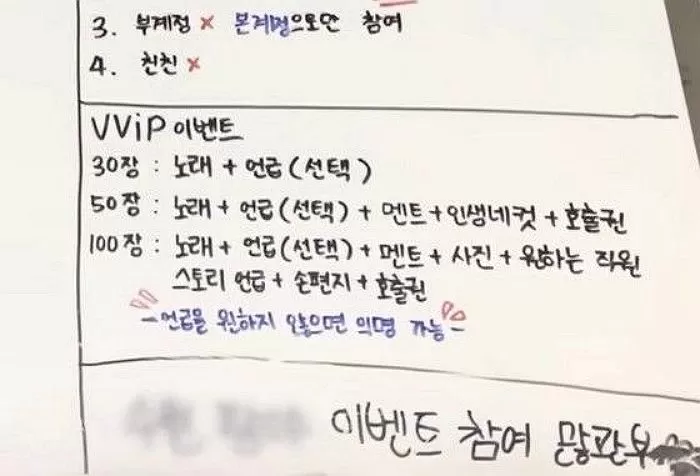 3. 부계정 × 본계정으로만 참여
4. 친친 ×
VViP 이벤트
30장 : 노래 + 언급(선택)
50장 : 노래 + 언급(선택) + 멘트 + 인생네컷 + 호출권
100장 : 노래 + 언급(선택) + 멘트 + 사진 + 원하는 직원
스토리 언급 + 손편지 + 호출권
- 언급을 원하지 않으면 익명 가능 -
이벤트 참여 많관부